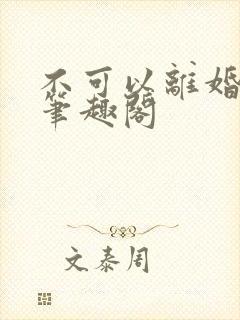 不可以離婚
筆趣閣
文泰周